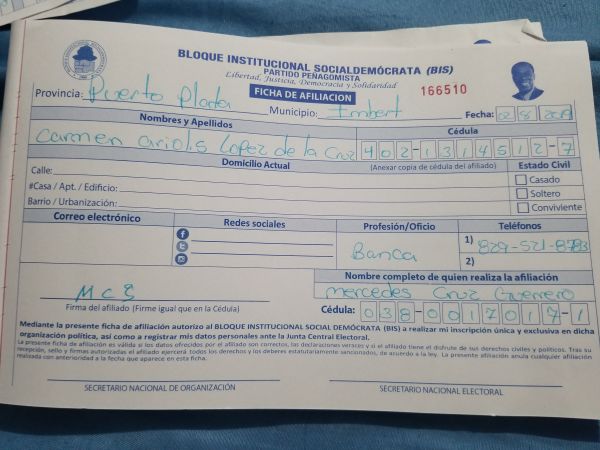 BLOQUE INSTITUCIONAL SOCIALDEMÓCRATA (BIS)
PARTIDO PEÑAGOMISTA
Libertad, Justicia, Democracia y Solidaridad
FICHA DE AFILIACION
166510
Provincia: Puerto Plata Municipio: Imbert Fecha: 02 8 2019
Nombres y Apellidos Cédula
Carmen ariolis Lopez de la Cruz 402-1314512-7
Domicilio Actual (Anexar copia de cédula del afiliado) Estado Civil
Calle: Casado
#Casa / Apt. / Edificio: Soltero
Barrio / Urbanización: Conviviente
Correo electrónico Redes sociales Profesión/Oficio Teléfonos
Banca 1) 829-521-8783
2)
Nombre completo de quien realiza la afiliación
mercedes Cruz Guerrero
Firma del afiliado (Firme igual que en la Cédula) Cédula: 038-0017017-1
Mediante la presente ficha de afiliación autorizo al BLOQUE INSTITUCIONAL SOCIAL DEMÓCRATA (BIS) a realizar mi inscripción única y exclusiva en dicha
organización política, así como a registrar mis datos personales ante la Junta Central Electoral.
La presente ficha de afiliación es válida si los datos ofrecidos por el afiliado son correctos, las declaraciones veraces y si el afiliado tiene el disfrute de sus derechos civiles y políticos. Tras su
recepción, sello y firmas autorizadas el afiliado ejercerá todos los derechos y los deberes estatutariamente sancionados, de acuerdo a la ley. La presente afiliación anula cualquier afiliación
realizada con anterioridad a la fecha que aparece en esta ficha.
SECRETARIO NACIONAL DE ORGANIZACIÓN SECRETARIO NACIONAL ELECTORAL